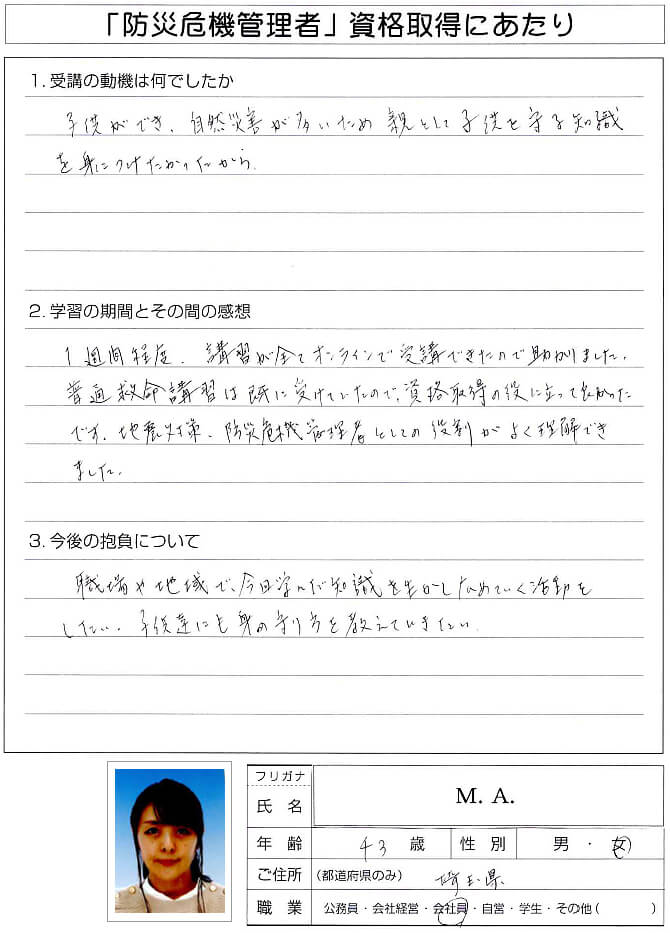 「防災危機管理者」資格取得にあたり
1. 受講の動機は何でしたか
子供ができ、自然災害が多いため親として子供を守る知識
を身につけたかったから.
2. 学習の期間とその間の感想
1週間程度、講習が全てオンラインで受講できたので助かりました.
普通救命講習は既に受けていたので、資格取得の役に立って良かった
です. 地震対策、防災危機管理者としての役割がよく理解でき
ました.
3. 今後の抱負について
職場や地域で、今回学んだ知識を生かし広めていく活動を
したい. 子供達にも身の守り方を教えていきたい.
フリガナ
氏 名 M. A.
年 齢 43 歳 性 別 男 ・ 女
ご住所 (都道府県のみ) 埼玉県
職 業 公務員・会社経営・会社員・自営・学生・その他( )